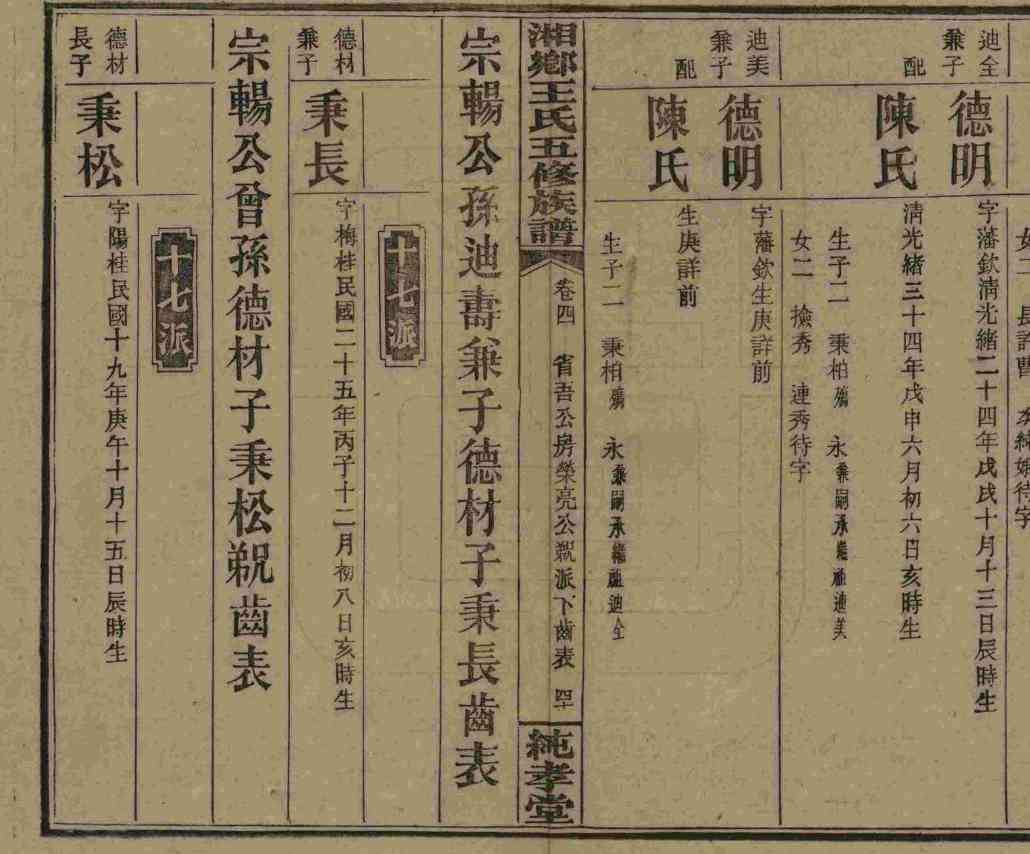 迪全
兼子
德明
字藩欽清光緒二十四年戊戌十月十三日辰時生
配
陳氏
清光緒三十四年戊申六月初六日亥時生
生子二 秉柏殤 永兼嗣承繼祧迪美
女二 撿秀 連秀待字
迪美
兼子
德明
字藩欽生庚詳前
配
陳氏
生庚詳前
生子二 秉柏殤 永兼嗣承繼祧迪全
湘鄉王氏五修族譜
卷四 省吾公房榮亮公派下齒表
純孝堂
宗暢公孫迪壽兼子德材子秉長齒表
十七派
德材
兼子
秉長
字梅桂民國二十五年丙子十二月初八日亥時生
宗暢公曾孫德材子秉松派齒表
十七派
德材
長子
秉松
字陽桂民國十九年庚午十月十五日辰時生